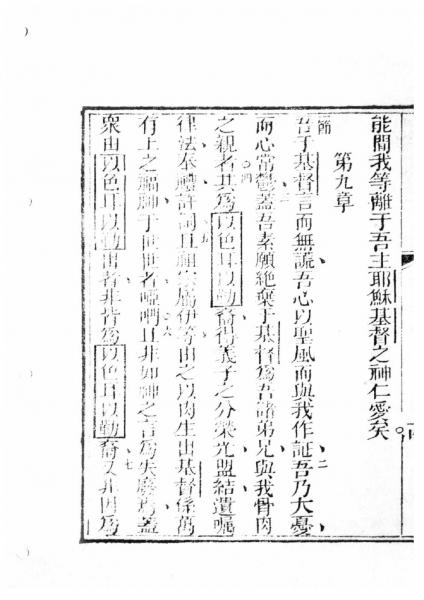 能間我等離于吾主耶穌基督之神仁愛矣
第九章
節吾于基督言而無謊吾心以聖風而與我作証二吾乃大憂
而心常鬱三蓋吾素願絕棄于基督為吾諸弟兄與我骨肉
之親者四其為以色耳以勒裔得義子之分榮光盟結遺囑
律法奉禮許詞五且祖宗屬伊等由之以肉生出基督係萬
有上之福神于世世者啞六且非如神之言為失廢焉蓋
衆由以色耳以勒出者非皆為以色耳以勒裔七又非因為